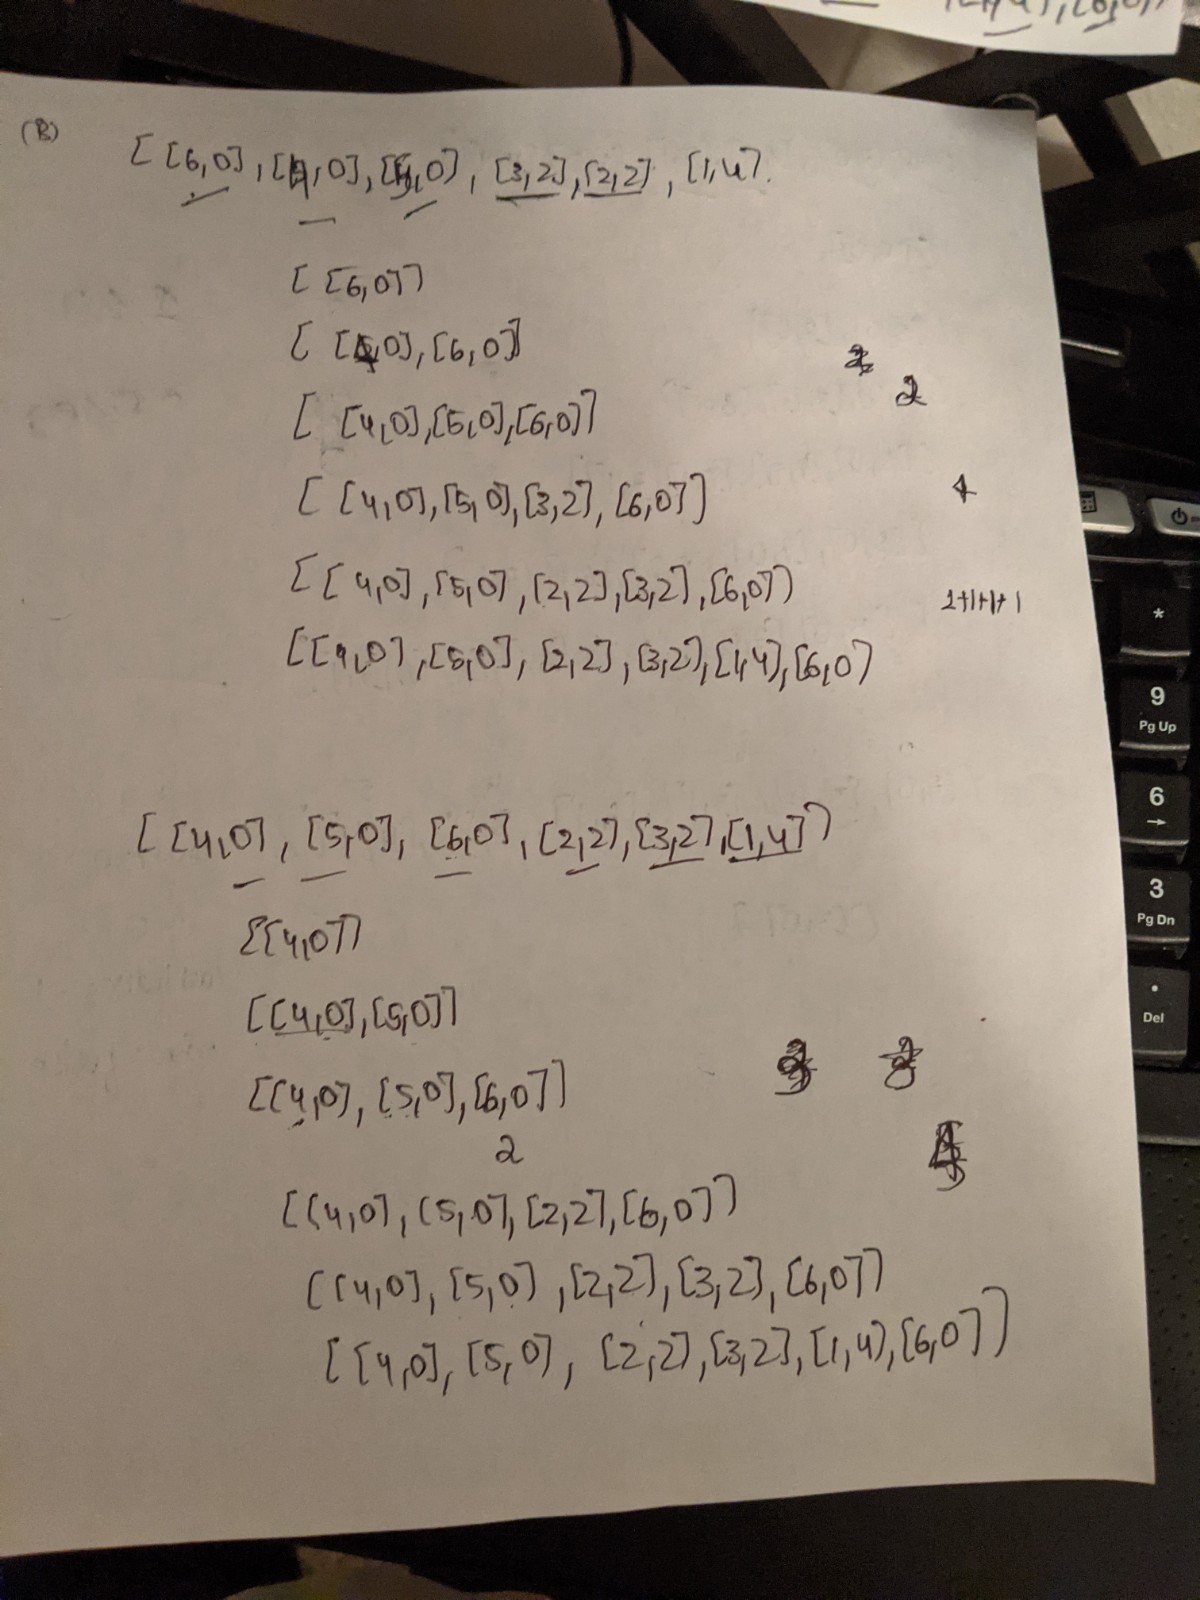 (B)
[ [6,0], [4,0], [5,0], [3,2], [2,2], [1,4].
[ [6,0]]
[ [5,0], [6,0]]
2
[ [4,0],[5,0],[6,0]]
[ [4,0],[5,0],[3,2],[6,0]]
1
[[4,0],[5,0],[2,2],[3,2],[6,0]]
2+1+1+1
[[4,0],[5,0],[2,2],[3,2],[1,4],[6,0]
[ [4,0], [5,0], [6,0], [2,2],[3,2],[1,4]]
[[4,0]]
[[4,0],[5,0]]
[[4,0], [5,0],[6,0]]
2
[[4,0],[5,0],[2,2],[6,0]]
[[4,0],[5,0],[2,2],[3,2],[6,0]]
[[4,0],[5,0], [2,2],[3,2],[1,4],[6,0]]
*
9
Pg Up
6
→
3
Pg Dn
.
Del